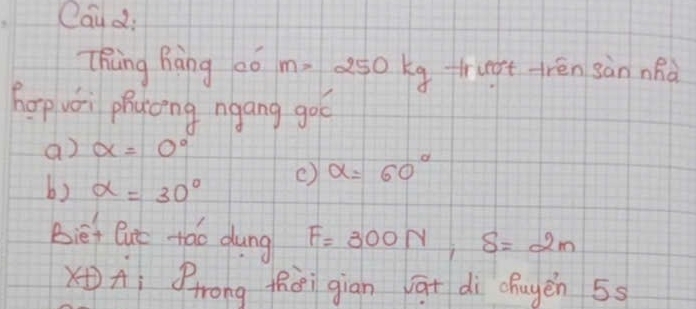 Câu 2:
Thùng hàng có m = 250 kg trượt trên sàn nhà
hợp với phương ngang góc
a) α = 0°
c) α = 60°
b) α = 30°
Biết lực tác dụng F = 300 N, S = 2m
XĐ A; P trong thời gian vật di chuyển 5s